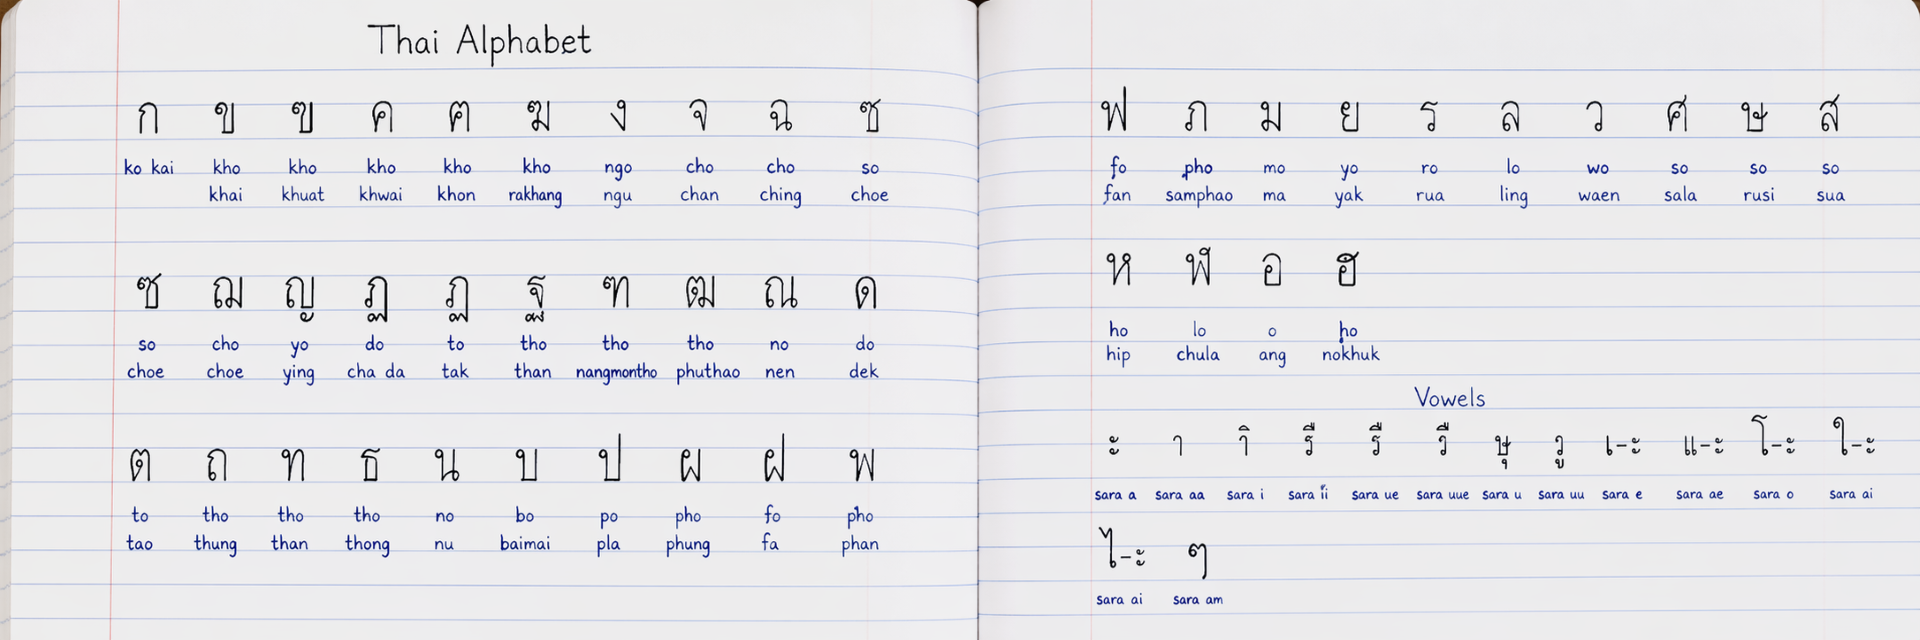 Thai Alphabet
ก ข ฃ ค ฅ ฆ ง จ ฉ ซ
ko kai kho kho kho kho kho ngo cho cho so
khai khuat khwai khon rakhang ngu chan ching choe
ซ ฌ ญ ฏ ฏ ฐ ฑ ฒ ณ ด
so cho yo do to tho tho tho no do
choe choe ying cha da tak than nangmontho phuthao nen dek
ต ถ ท ธ น บ ป ผ ฝ พ
to tho tho tho no bo po pho fo pho
tao thung than thong nu baimai pla phung fa phan
ฟ ภ ม ย ร ล ว ศ ษ ส
fo pho mo yo ro lo wo so so so
fan samphao ma yak rua ling waen sala rusi sua
ห ฬ อ ฮ
ho lo o ho
hip chula ang nokhuk
Vowels
ะ า าิ รื รื วื ษุ วู เ-ะ แ-ะ โ-ะ ใ-ะ
sara a sara aa sara i sara ii sara ue sara uue sara u sara uu sara e sara ae sara o sara ai
ไ-ะ ๆ
sara ai sara am